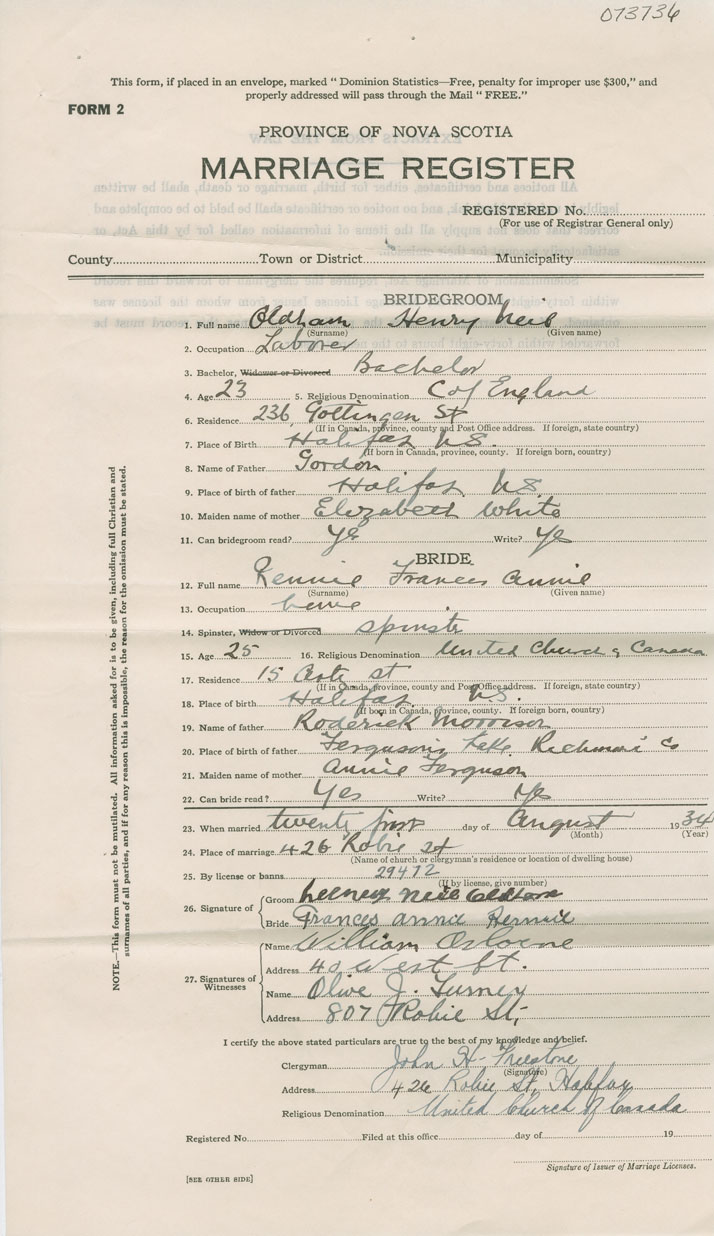 073736
This form, if placed in an envelope, marked " Dominion Statistics—Free, penalty for improper use $300," and
properly addressed will pass through the Mail " FREE."
FORM 2
PROVINCE OF NOVA SCOTIA
MARRIAGE REGISTER
REGISTERED No.
(For use of Registrar General only)
County Town or District Municipality
BRIDEGROOM
1. Full name Oldham Henry Neil
(Surname) (Given name)
2. Occupation Laborer
3. Bachelor, Widower or Divorced Bachelor
4. Age 23 5. Religious Denomination C of England
6. Residence 236 Gottingen St
(If in Canada, province, county and Post Office address. If foreign, state country)
7. Place of Birth Halifax N.S.
(If born in Canada, province, county. If foreign born, country)
8. Name of Father Gordon
9. Place of birth of father Halifax N.S.
10. Maiden name of mother Elizabeth White
11. Can bridegroom read? Yes Write? Yes
BRIDE
12. Full name Rennie Frances Annie
(Surname) (Given name)
13. Occupation
14. Spinster, Widow or Divorced Spinster
15. Age 25 16. Religious Denomination United Church of Canada
17. Residence 15 st
(If in Canada, province, county and Post Office address. If foreign, state country)
18. Place of birth Halifax N.S.
(If born in Canada, province, county. If foreign born, country)
19. Name of father Roderick Morrison
20. Place of birth of father Ferguson's Lake Richmond Co
21. Maiden name of mother Annie Ferguson
22. Can bride read? Yes Write? Yes
23. When married twenty first day of August 1934
(Month) (Year)
24. Place of marriage 426 Robie St
(Name of church or clergyman's residence or location of dwelling house)
25. By license or banns 29472
(If by license, give number)
26. Signature of Groom Henry Neil Oldham
Bride Frances Annie Rennie
27. Signatures of Witnesses
Name William Osborne
Address 40 West St.
Name Olive J. Turney
Address 807 Robie St.
I certify the above stated particulars are true to the best of my knowledge and/belief.
Clergyman John H. Freestone
(Signature)
Address 426 Robie St, Halifax
Religious Denomination United Church of Canada
Registered No. Filed at this office day of 19
Signature of Issuer of Marriage Licenses.
[SEE OTHER SIDE]
NOTE.—This form must not be mutilated. All information asked for is to be given, including full Christian and
surnames of all parties, and if for any reason this is impossible, the reason for the omission must be stated.